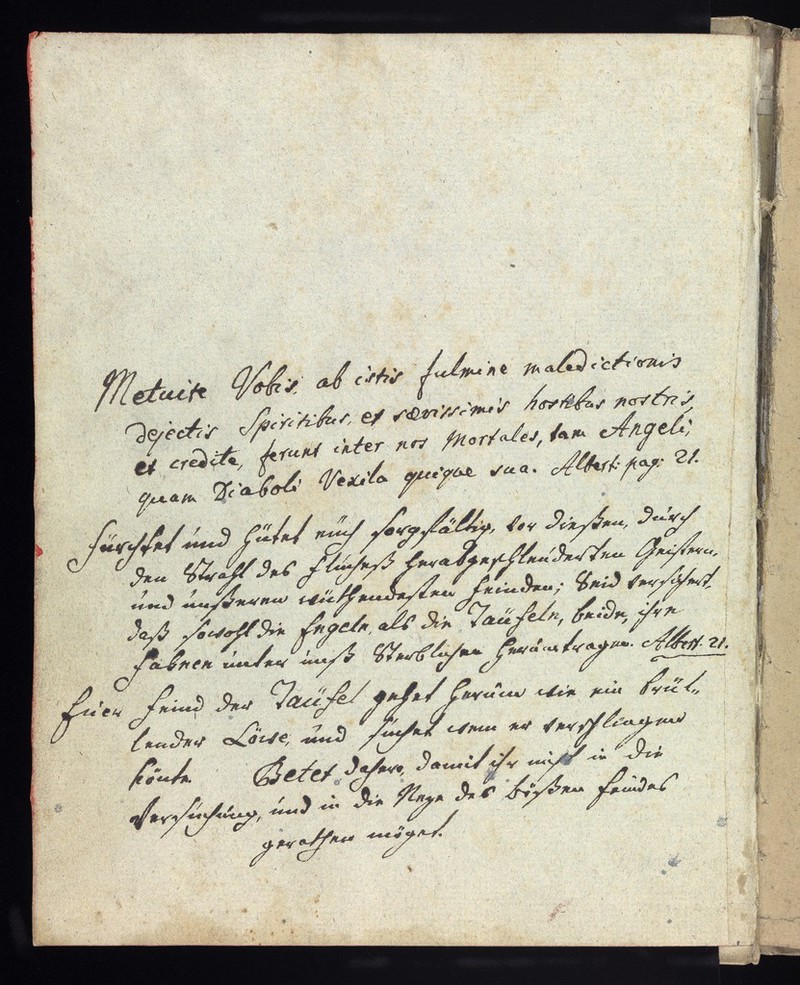 Metuite Vobis, ab istis fulmine maledictionis
dejectis Spiritibus, et sævissimis hostibus nostris,
et credite, ferunt inter nos Mortales, tam Angeli,
quam Diaboli Vexila quique sua. Albert: pag: 21.
Fürchtet und hütet euch sorgfältig, vor dießen, durch
den Strahl des Flucheß herabgeschleuderten Geistern,
und unßeren wüthendesten Feinden; Seid versichert,
daß sowohl die Engeln, als die Täufeln, beide, ihre
Fahnen unter unß Sterblichen herumtragen. Albert. 21.
Euer Feind der Täufel gehet herum wie ein brül-
lender Löwe, und suchet wem er verschlingen
könte Betet dahero, damit ihr nicht in die
Versuchung, und in die Neze des bößen Feindes
gerathen möget.